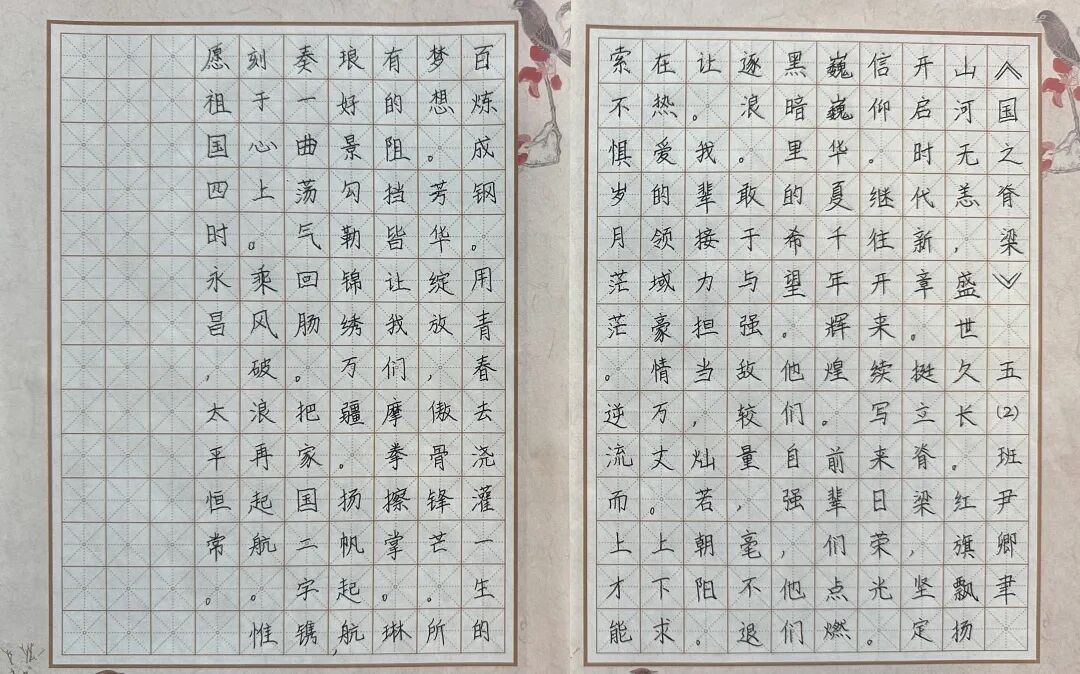 《国之脊梁》五(2)班尹卿聿
山河无恙，盛世久长。红旗飘扬
开启时代新章。挺立脊梁，坚定
信仰。继往开来续写来日荣光。
巍巍华夏千年辉煌。前辈们点燃
黑暗里的希望。他们自强，他们
逐浪。敢于与强敌较量，毫不退
让。我辈接力担当，灿若朝阳。
在热爱的领域豪情万丈。上下求
索不惧岁月茫茫。逆流而上才能
百炼成钢。用青春去浇灌一生的
梦想。芳华绽放，傲骨锋芒。所
有的阻挡皆让我们摩拳擦掌。琳
琅好景勾勒锦绣万疆。扬帆起航，
奏一曲荡气回肠。把家国二字镌
刻于心上。乘风破浪再起航。惟
愿祖国四时永昌，太平恒常。